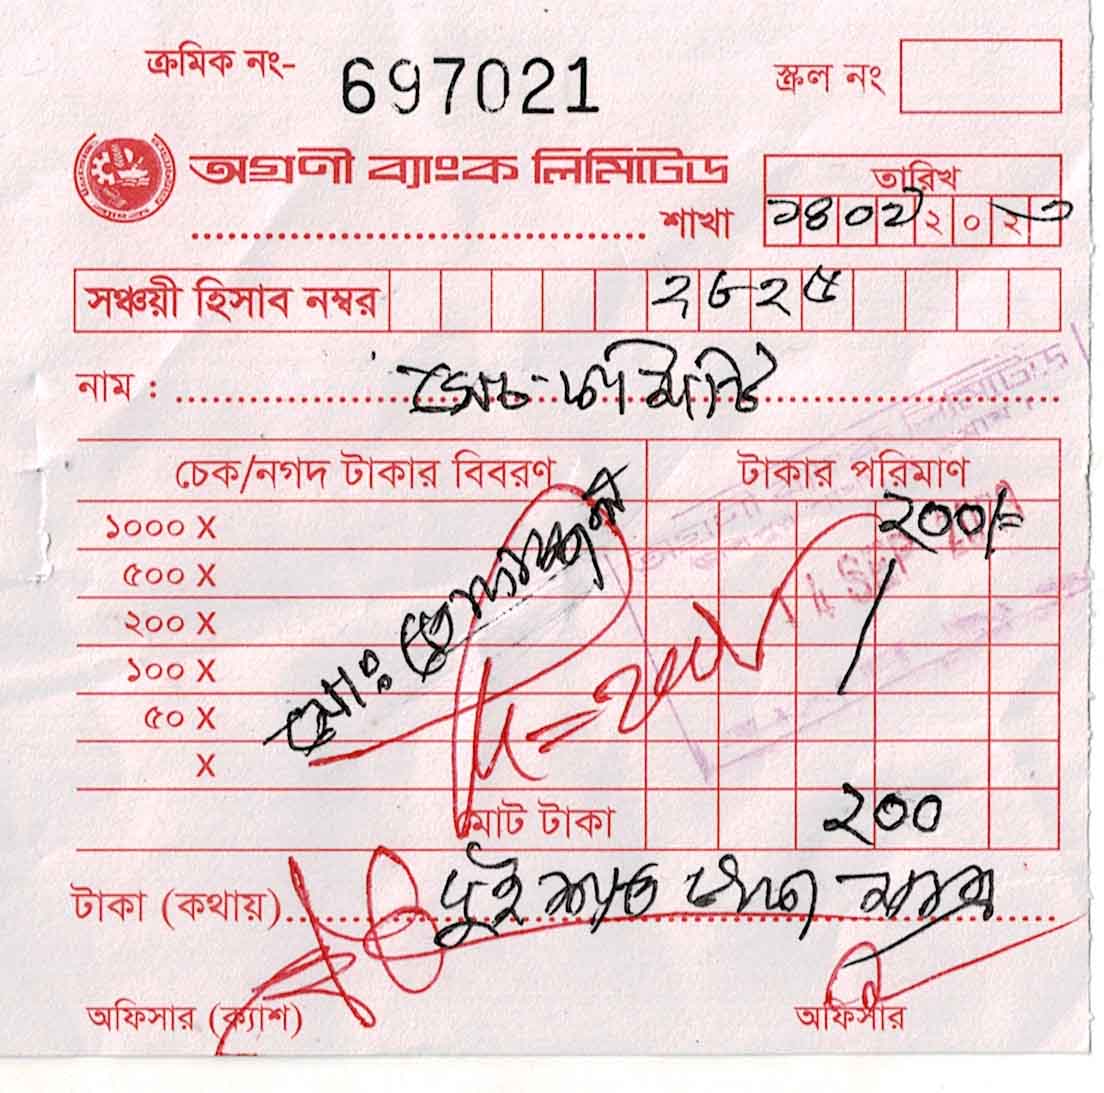 ক্রমিক নং- 697021
স্ক্রল নং
অগ্রণী ব্যাংক লিমিটেড
তারিখ
শাখা
২০২
সঞ্চয়ী হিসাব নম্বর ২৮২৫
নাম :
চেক/নগদ টাকার বিবরণ টাকার পরিমাণ
১০০০ X ২০০/=
৫০০ X
২০০ X
১০০ X
৫০ X
X
মোঃ
মোট টাকা ২০০
টাকা (কথায়) দুই শত টাকা মাত্র
অফিসার (ক্যাশ) অফিসার